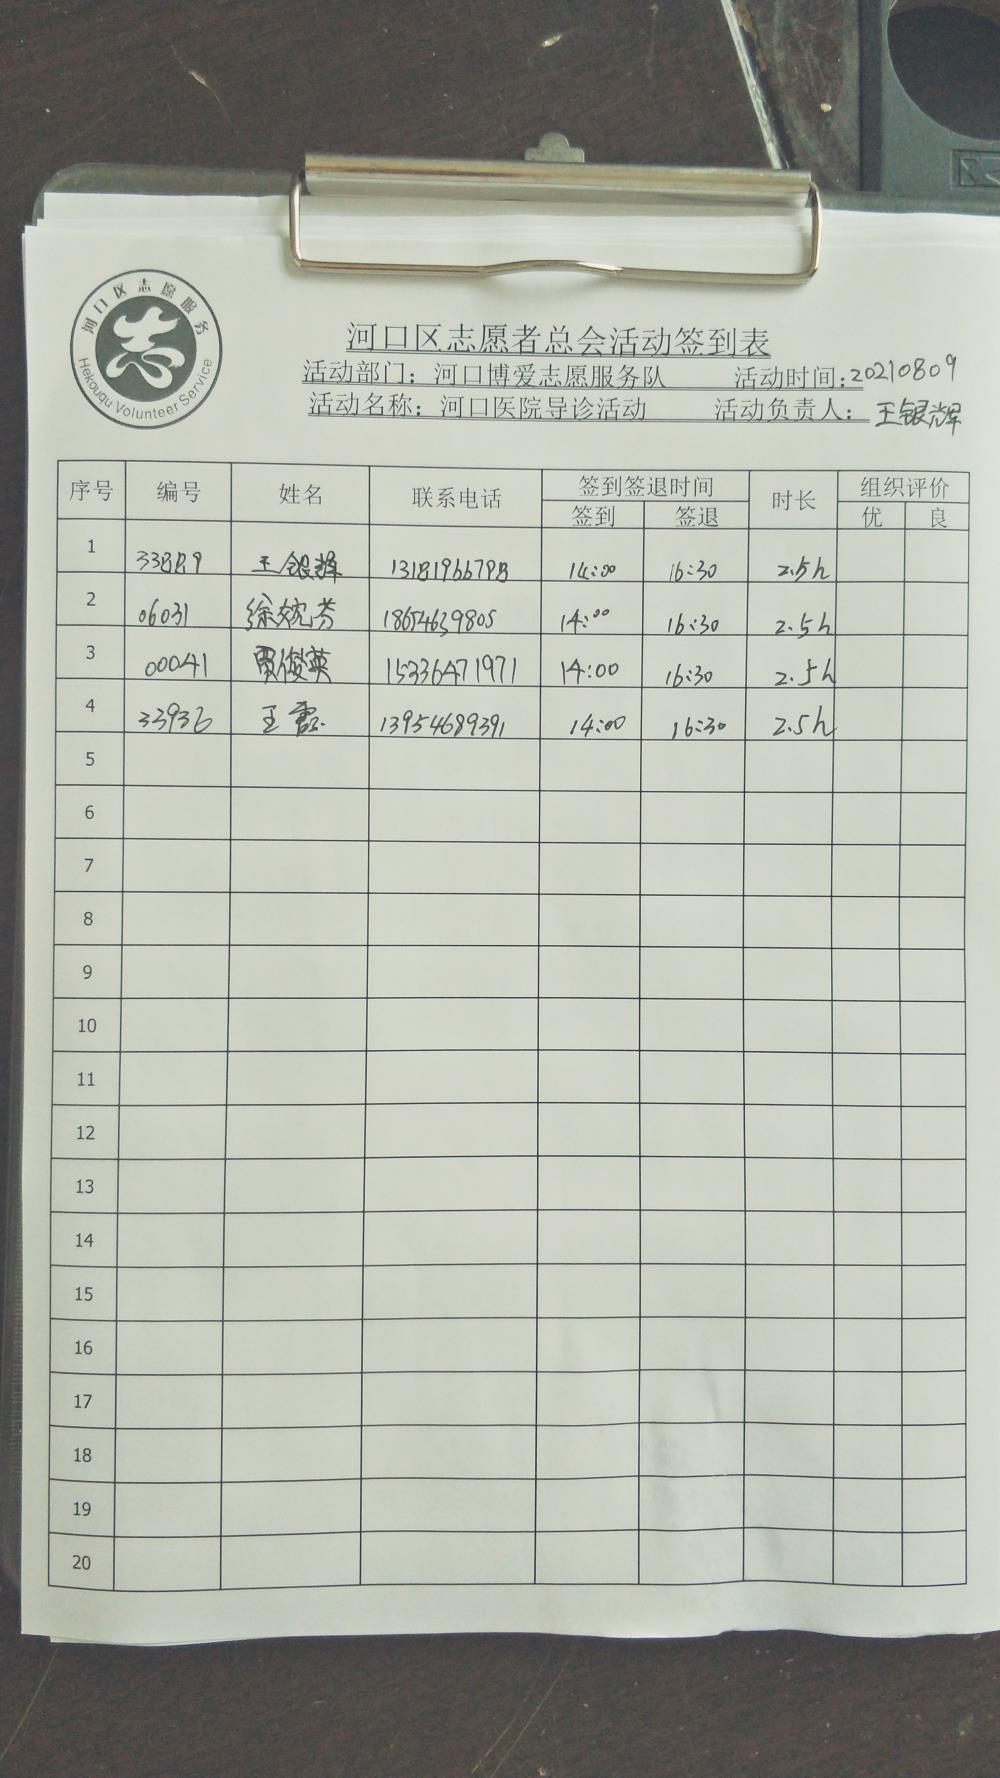 河口区志愿服务
Hekouqu Volunteer Service
志
河口区志愿者总会活动签到表
活动部门：河口博爱志愿服务队 活动时间:20210809
活动名称：河口医院导诊活动 活动负责人：王银辉
序号 编号 姓名 联系电话 签到签退时间 时长 组织评价
签到 签退 优 良
1 33889 王银辉 13181966798 14:00 16:30 2.5h
2 06031 徐婉芬 18654639805 14:00 16:30 2.5h
3 00041 贾俊英 15336471971 14:00 16:30 2.5h
4 33936 王霞 13954689391 14:00 16:30 2.5h
5
6
7
8
9
10
11
12
13
14
15
16
17
18
19
20